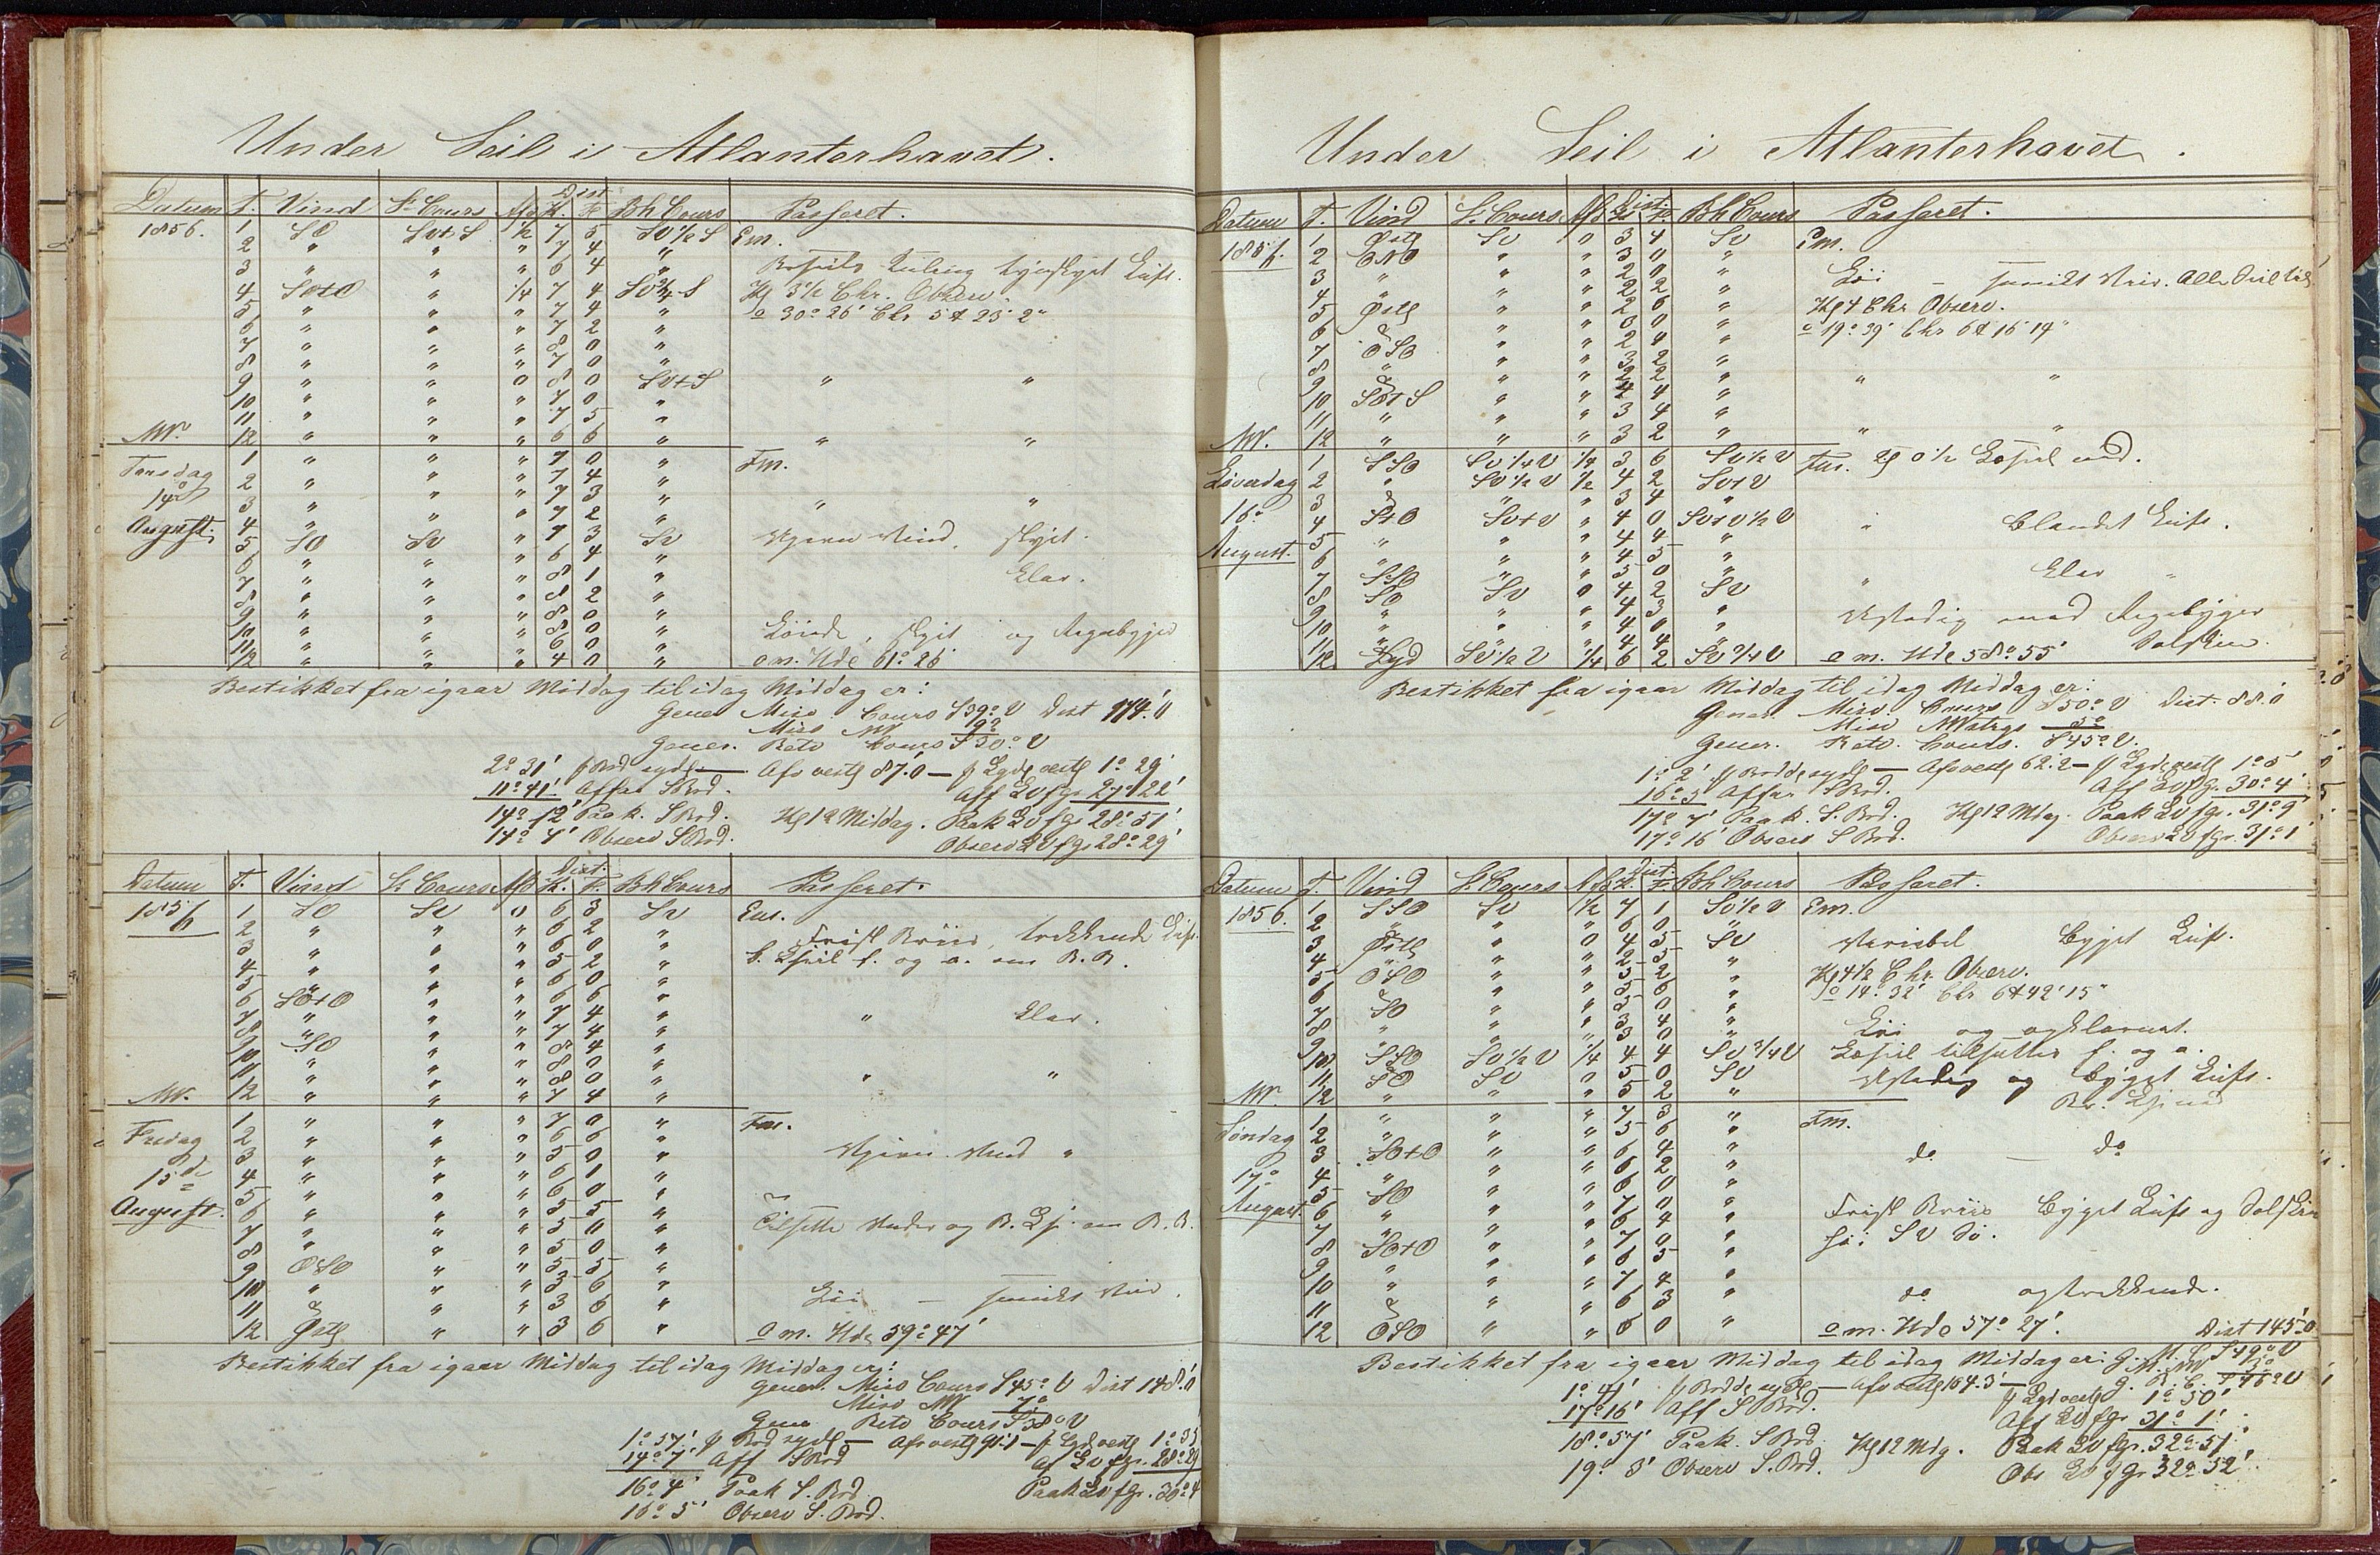 Under Seil i Atlanterhavet.
Datum T. Vind St. Cours Afd Dist. K. F. Bh Cours Passeret.
1856. 1 SO SvtS ½ 7 5 SV½S Em.
2 " " " 7 4 "
3 " " " 6 4 " Kuling Luft.
4 SOtO " ¼ 7 4 SV¾S Kl 3½ Chr. Observ.
5 " " " 7 4 " o 30° 26' Chr 5t 23' 2"
6 " " " 7 2 "
7 " " " 8 0 "
8 " " " 7 0 "
9 " " 0 8 0 SVtS " "
10 " " " 7 0 "
11 " " " 7 5 "
MN. 12 " " " 6 6 " " "
Torsdag 1 " " " 7 0 " Fm.
14de 2 " " " 7 4 "
3 " " " 7 3 " " "
August. 4 " " " 7 2 "
5 SO SV " 7 3 SV Vind, skyet.
6 " " " 6 4 "
7 " " " 8 1 " Klar.
8 " " " 8 2 "
9 " " " 8 0 "
10 " " " 8 0 " Løiede, skyet og Regnbyger
11 " " " 6 0 "
12 " " " 4 0 " o m. Hde 61° 26'
Bestikket fra igaar Middag til idag Middag er:
Gener Misv. Cours S39°V Dist 174'.0
Misv NV 9°
Gener. Retv Cours S30°V
2° 31' f Brd sydl — Afv vestl 87'.0 — f Lgde vestl 1° 29'
11° 41' Affar SBrd. Aff LVfGr 27° 22'
14° 12' Paak. SBrd. Kl 12 Middag. Paak LVfGr 28° 51'
14° 7' Observ SBrd. Observ LVfGr 28° 29'
Datum T. Vind St. Cours Afd Dist. K. F. Bh Cours Passeret.
1856 1 SO SV 0 6 3 SV Em.
2 " " " 6 2 " Frisk Briis, trekkende Luft.
3 " " " 6 0 " f. og a. om B.B.
4 " " " 5 2 "
5 " " " 6 0 "
6 SOtO " " 6 6 "
7 " " " 7 4 " " Klar.
8 " " " 7 4 "
9 SO " " 8 4 "
10 " " " 8 0 "
11 " " " 8 0 " " "
MN. 12 " " " 7 4 "
1 " " " 7 0 " Fm.
Fredag 2 " " " 6 6 "
3 " " " 5 0 " Vind "
15de 4 " " " 6 1 "
5 " " " 6 0 "
August. 6 " " " 5 5 " Tilsatte Under og B. om B.B.
7 " " " 5 0 "
8 " " " 5 0 "
9 OSO " " 5 5 "
10 " " " 3 6 " Løi —
11 " " " 3 6 "
12 Østl " " 3 6 " o m. Hde 59° 47'
Bestikket fra igaar Middag til idag Middag er:
Gener. Misv Cours S45°V Dist 148'.0
Misv NV 7°
Gener Retv Cours S38°V
1° 57' f Brd sydl — Afv vestl 91'.1 — f Lgde vestl 1° 35
14° 7' Aff SBrd Af LVfGr. 28° 29
16° 4' Paak S. Brd Paak LVfGr. 30° 4
16° 5' Observ S. Brd.
Under Seil i Atlanterhavet.
Datum T. Vind St. Cours Afd Dist. K. F. Bh Cours Passeret.
1856. 1 Østl SV 0 3 4 SV Em.
2 ONO " " 3 0 "
3 " " " 2 0 " Løi — Alle Seil til
4 " " " 2 2 "
5 Østl " " 2 6 " Kl 4 Chr Observ.
6 " " " 3 0 " o 19° 39' Chr 6t 16' 19"
7 OSO " " 2 4 "
8 " " " 3 2 "
9 " " " 2 2 " " "
10 SOtS " " 4 4 "
11 " " " 3 4 "
MN. 12 " " " 3 2 " " "
1 SSO SV¼V ¼ 3 6 SV½V Fm. Kl 0½ Læseil ind.
Løverdag 2 " SV½V ½ 4 2 SVtV
3 " " " 3 4 "
16de 4 StO SVtV " 4 0 SVtV½V " Blandet Luft.
August. 5 " " " 4 4 "
6 " " " 4 5 "
7 SSO " " 5 0 " " Klar "
8 SO SV 0 4 2 SV
9 " " " 4 3 " Ustadig med Regnbyger
10 " " " 4 0 "
11 " " " 4 4 " Solskin.
12 Syd SV½V ¼ 6 2 SV¾V o m. Hde 58° 55'
Bestikket fra igaar Middag til idag Middag er:
Gener. Misv. Cours S50°V Dist. 88'.0
Misv NV 5°
Gener. Retv. Cours. S45°V.
1° 2' f Bredde sydl — Afv vestl 62.2 — f Lgde vestl 1° 5'
16° 5' Affar SBrd. Aff LVfG. 30° 4'
17° 7' Paak. S. Brd. Kl 12 Mdag. Paak LVfGr. 31° 9'
17° 16' Observ S Brd. Observ LVfGr. 31° 1'
Datum T. Vind St. Cours Afd Dist. K. F. Bh Cours Passeret.
1856. 1 SSO SV ½ 7 1 SV½V Em.
2 " " " 6 0 "
3 Østl " 0 4 5 SV Variabel Byget Luft.
4 " " " 2 5 "
5 OSO " " 5 2 " Kl 4½ Chr. Observ.
6 " " " 5 6 " o 14° 32' Chr 6t 42' 15"
7 SO " " 5 0 "
8 " " " 3 4 " Løi og opklarnet.
9 " " " 3 0 "
10 SSO SV½V ¼ 4 4 SV¾V Læseil tilsattes f. og a.
11 SO SV 0 5 0 SV Ustadig og byget Luft.
MN. 12 " " " 5 2 "
1 " " " 7 3 " Fm.
Søndag 2 " " " 5 6 "
3 SOtO " " 6 4 " do — do
17de 4 " " " 6 2 "
5 SO " " 6 0 "
August. 6 " " " 7 0 " Frisk Briis Byget Luft og Solskin
7 " " " 6 4 " Sø: SV Sø.
8 SOtO " " 7 0 "
9 " " " 6 5 "
10 " " " 7 4 " do og trekkende.
11 " " " 6 3 "
12 OSO " " 6 0 " o m. Hde 57° 27'. Dist 145'.0
Bestikket fra igaar Middag til idag Middag er: G. M. C. S49°V
M. NV 3°
1° 41' f Bredde sydl — Afv vestl 104.3' — G. R. C. S46°V
17° 16' Aff S Brd. f Lgd vestl 1° 50'
Aff LVfGr 31° 1'
18° 57' Paak. S Brd. Kl 12 Mdg. Paak LVfGr. 32° 51'
19° 3' Observ S. Brd. Obs LVfGr 32° 52'